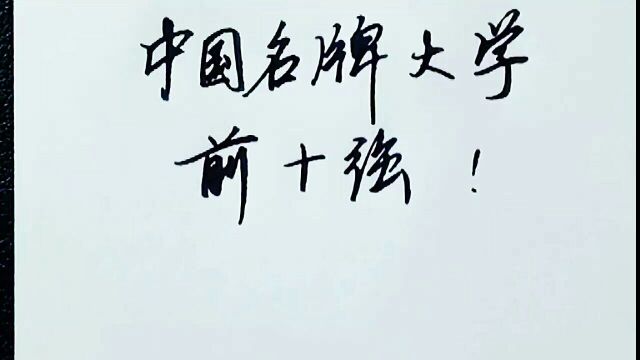 中国名牌大学
前十强!